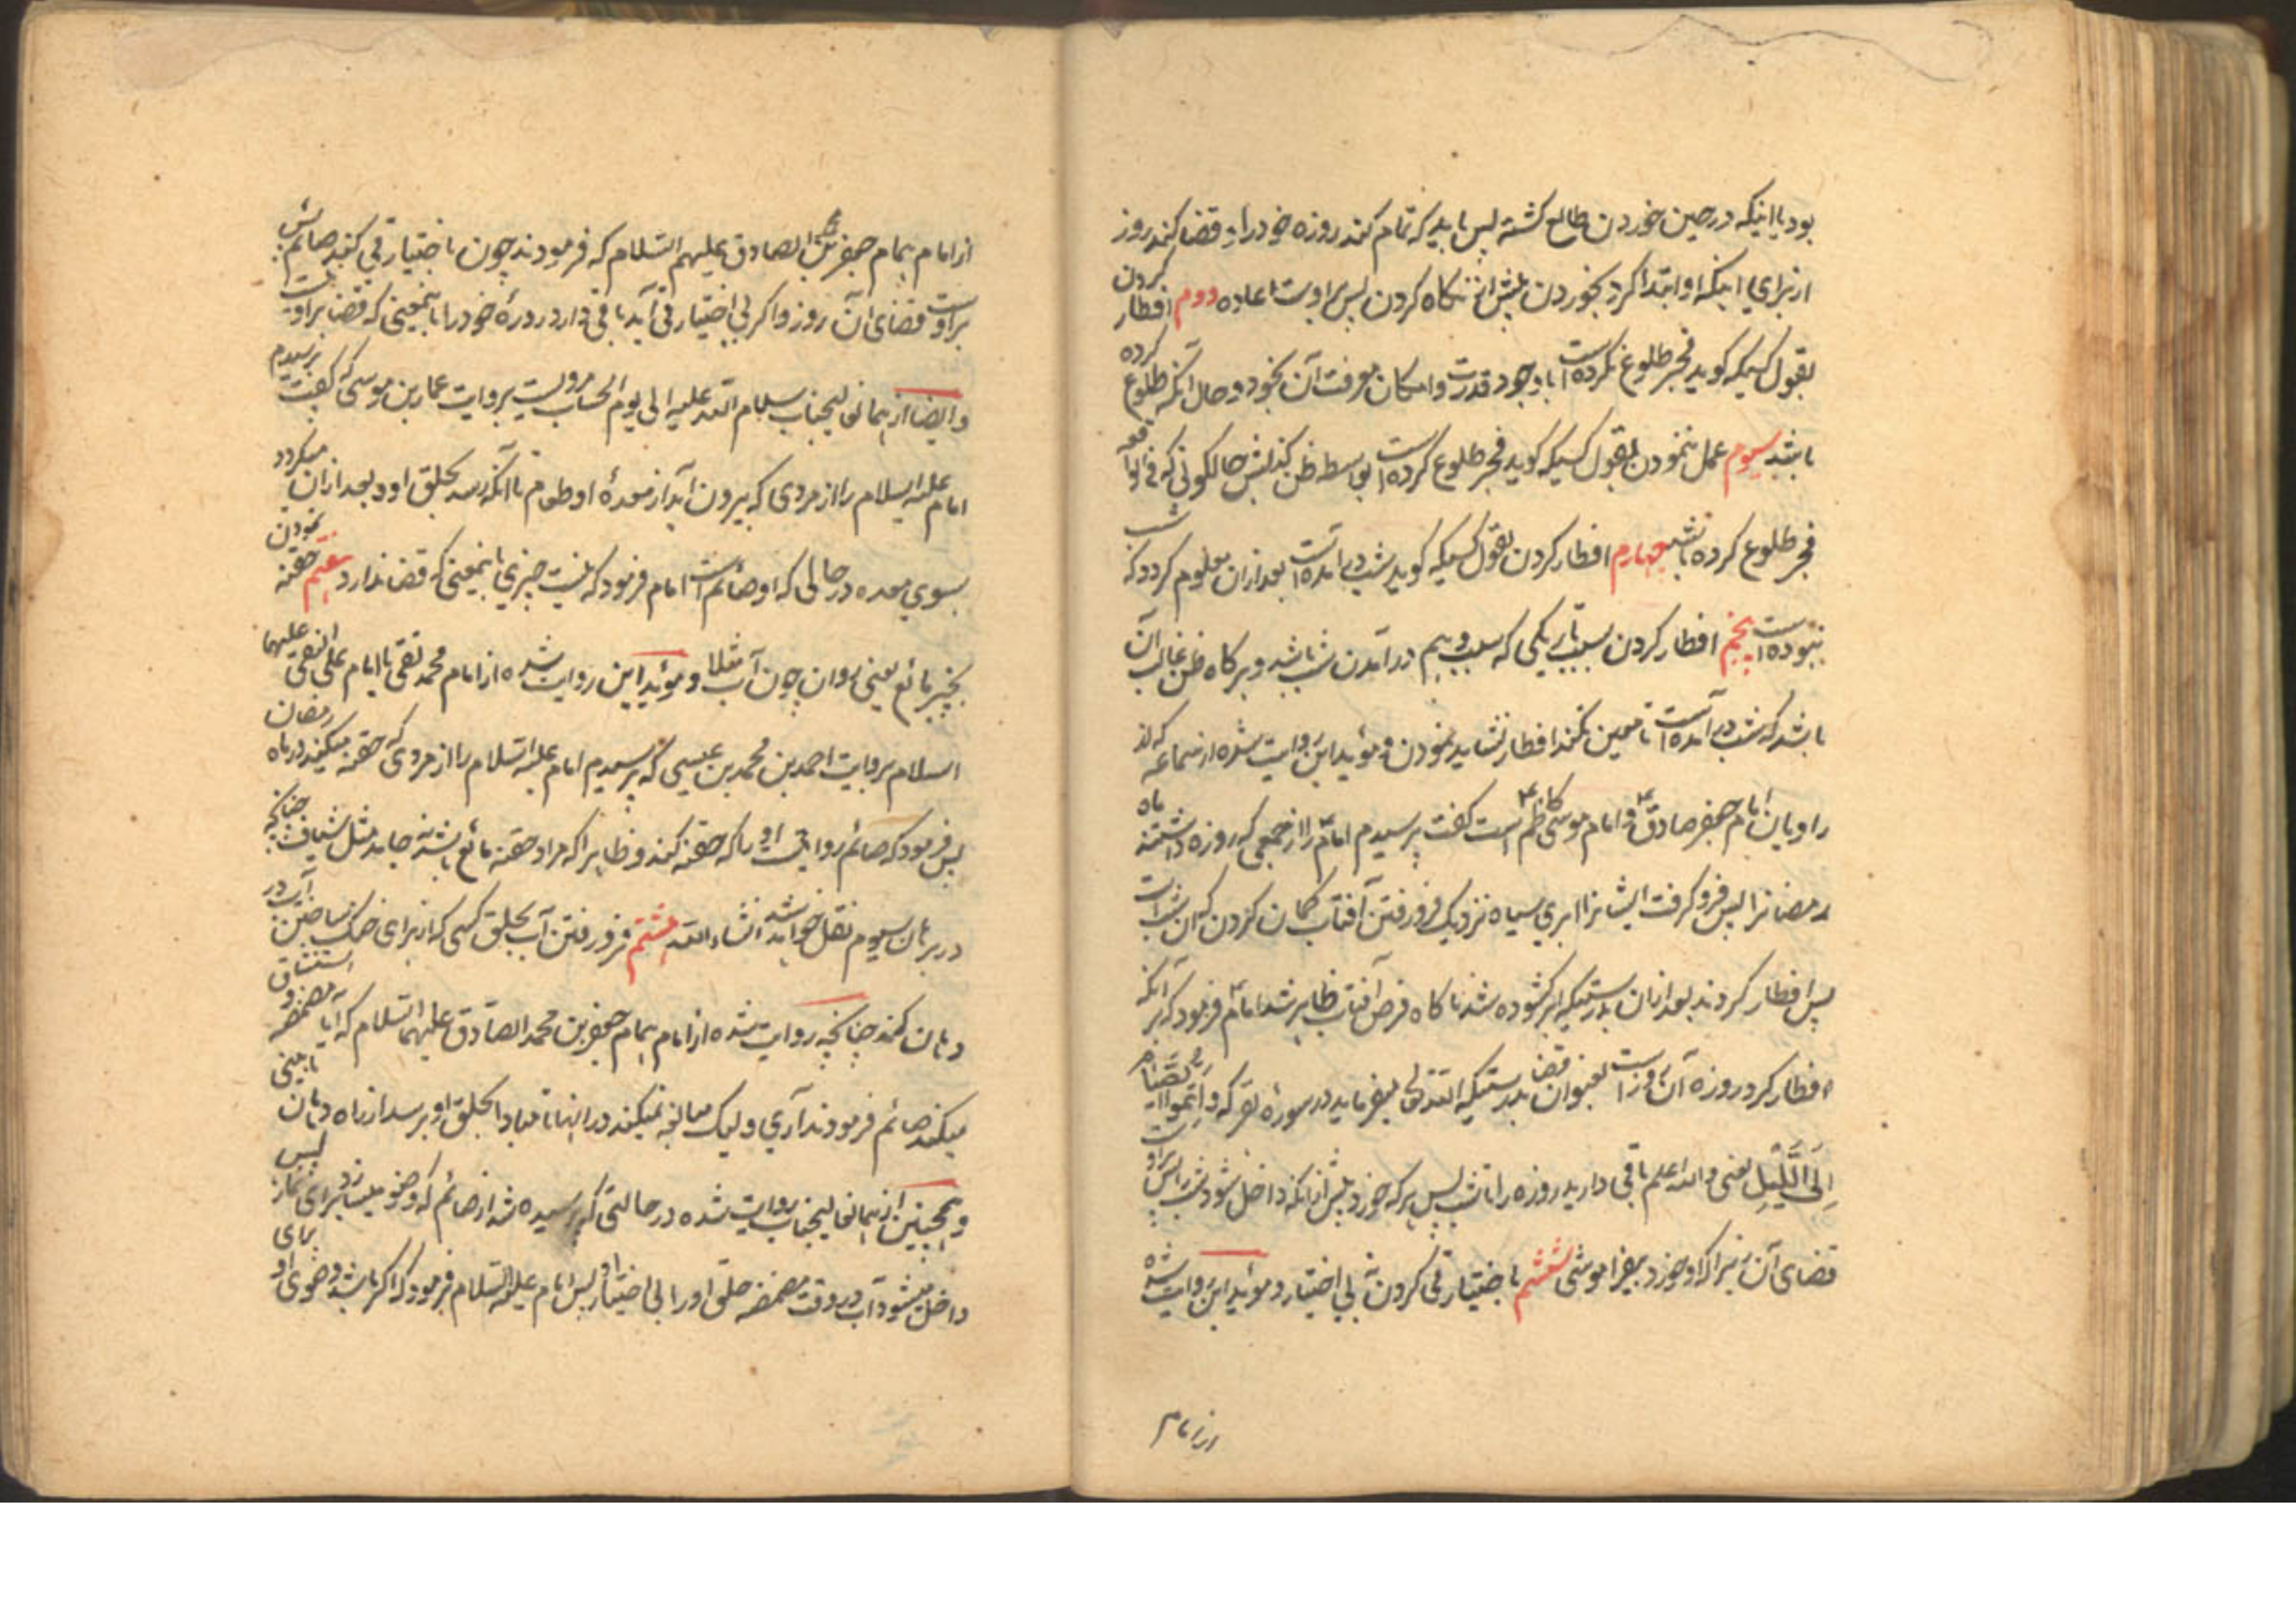 بود یا اینکه در حین خوردن طالع کشته پس باید که تمام کند روزه خود را و قضا کند روز
از برای اینکه او ابتدا کرد بخوردن پیش از نکاه کردن پس بر اوست اعاده دوم افطار کردن
بقول کسیکه کوید فجر طلوع نکرده است با وجود قدرت و امکان معرفت آن بخود و حال آنکه طلوع کرده
باشد سیوم عمل ننمودن بقول کسیکه کوید فجر طلوع کرده است بواسطه ظن کذبش حالکونی که فی الواقعه
فجر طلوع کرده باشد چهارم افطار کردن بقول کسیکه کوید شب در آمده است بعد از ان معلوم کردد که شب
نبوده است پنجم افطار کردن بسبب تاریکی که سبب وهم در آمدن شب باشد و هر کاه ظن غالب آن
باشد که شب در آمده است تا معین نکند افطار نشاید نمودن و مؤید این روایت شده از سماعه که از
راویان امام جعفر صادق ع و امام موسی کاظم ع است گفت پرسیدم امام ع را از جمعی که روزه داشتند ماه
رمضانرا پس فرو کرفت ایشانرا ابری سیاه نزدیک فرو رفتن آفتاب کمان کردن که آن شب است
پس افطار کردند بعد از ان بدرستیکه ابر کشوده شد ناکاه قرص آفتاب ظاهر شد امام ع فرمود که هر آنکه
افطار کرد روزه آن روز را است بعنوان قضا بدرستیکه الله تعالی میفرماید در سوره بقر که و اتموا الصیام
إِلَى الَّلیْلِ یعنی و الله اعلم باقی دارید روزه را تا شب پس هر که خورد پیش از انکه داخل شود شب پس بر اوست
قضای آن زیرا که او خورد بغیر فراموشی ششم باختیار قی کردن نه بی اختیار و مؤید این روایت شده
از امام
از امام همام جعفر بن محمد الصادق علیهم السلام که فرمودند چون باختیار قی کند صائم پس
بر اوست قضای آن روز و اکر بی اختیار قی آید باقی دارد روزه خود را باینمعنی که قضا بر او نیست
و ایضا از همانعالیجناب سلام الله علیه الی یوم الحساب مرویست بروایت عمار بن موسی که گفت پرسیدم
امام علیه السلام را از مردی که بیرون آید از معده او طعام تا آنکه رسد بحلق او و بعد از ان میکردد
بسوی معده در حالی که او صائم است امام فرمود که نیست چیزی باینمعنی که قضا ندارد هفتم حقنه نمودن
بچیز مائع یعنی روان چون آب مثلا و مؤید این روایت شده از امام محمد تقی یا امام علی النقی علیهما
السلام بروایت احمد بن محمد بن عیسی که پرسیدم امام علیه السلام را از مردی که حقنه میکند در ماه رمضان
پس فرمود که صائم روا نیست او را که حقنه کند و ظاهرا که مراد حقنه مائع باشد نه جامد مثل شیاف چنانچه
در برهان سیوم نقل خواهد شد انشاء الله هشتم فرو رفتن آب بحلق کسی که از برای خنک ساختن آب در
دهان کند چنانچه روایت شده از امام همام جعفر بن محمد الصادق علیهما السلام که آیا مضمضه و استنشاق
میکند صائم فرمودند آری و لیک مبالغه نمیکند در اینها تا مبادا بحلق او برسد از راه دهان یا بینی
و همچنین از همانعالیجناب روایت شده در حالتی که پرسیده شد از صائم که وضو میسازد برای نماز پس
داخل میشود آب در وقت مضمضه حلق او را بی اختیار او پس امام علیه السلام فرمود که اکر باشد وضوی او برای